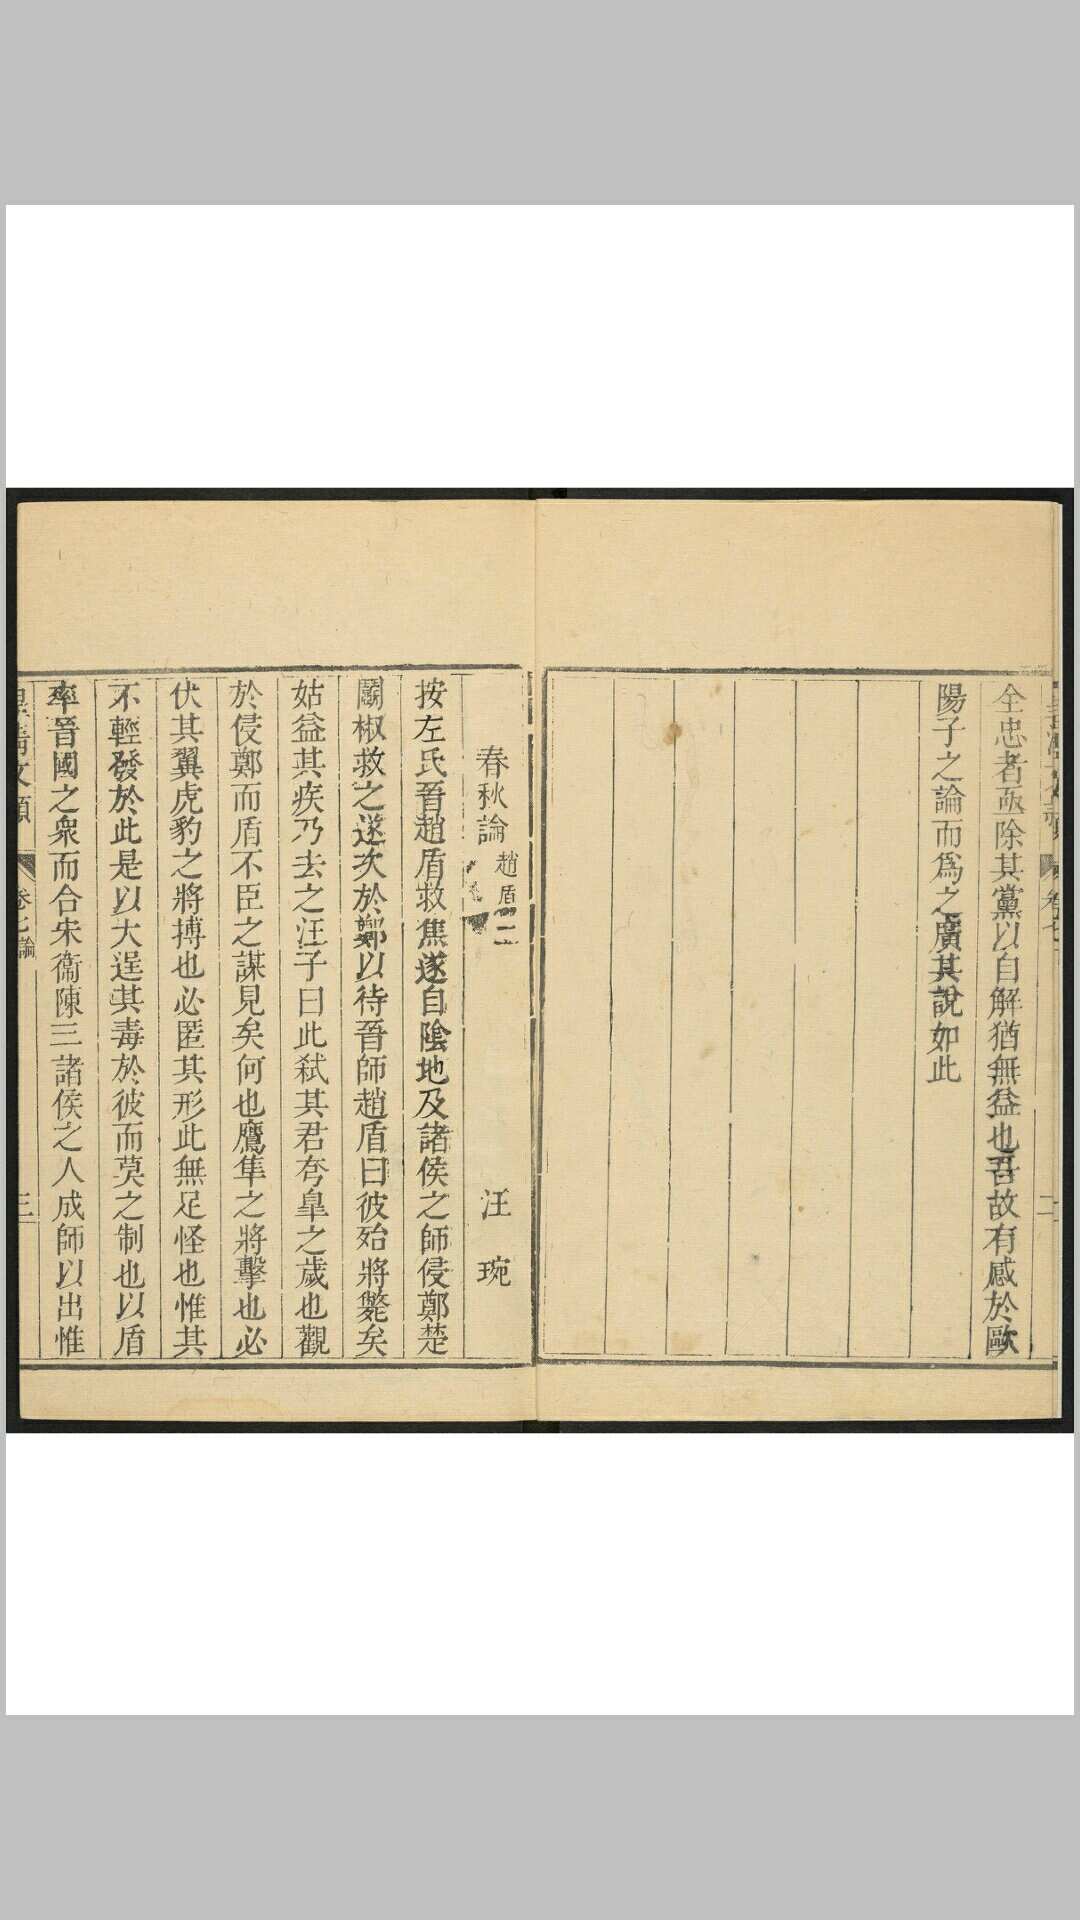 全忠者亟除其黨以自解猶無益也吾故有感於歐
陽子之論而爲之廣其說如此
春秋論趙盾二 汪琬
按左氏晉趙盾救焦遂自陰地及諸侯之師侵鄭楚
鬭椒救之遂次於鄭以待晉師趙盾曰彼殆將斃矣
姑益其疾乃去之汪子曰此弒其君夸臯之歲也觀
於侵鄭而盾不臣之謀見矣何也鷹隼之將擊也必
伏其翼虎豹之將搏也必匿其形此無足怪也惟其
不輕發於此是以大逞其毒於彼而莫之制也以盾
率晉國之衆而合宋衞陳三諸侯之人成師以出惟
皇淸文頴 卷七論 三